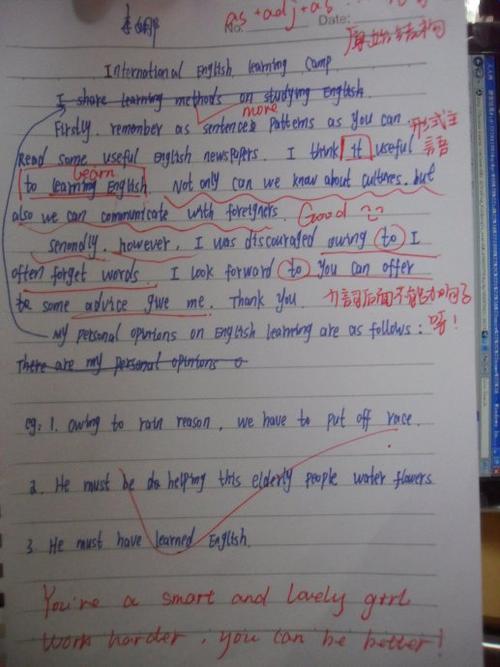 as + adj + as
No. Date:
原始结构
International English learning Camp
I share learning methods on studying English.
more
Firstly, remember as sentences patterns as you can.
形式主
Read some useful English newspapers. I think it useful
語
learn
to learning English. Not only can we know about cultures, but
also we can communicate with foreigners. Good
secondly, however, I was discouraged owing to I
often forget words. I look forward to you can offer
some advice give me. Thank you.
介詞后面不能
My personal opinions on English learning are as follows:
呀!
There are my personal opinions
eg: 1. Owing to rain reason, we have to put off race.
2. He must be do helping this elderly people water flowers
3. He must have learned English.
You're a smart and lovely girl
Work harder, you can be better!